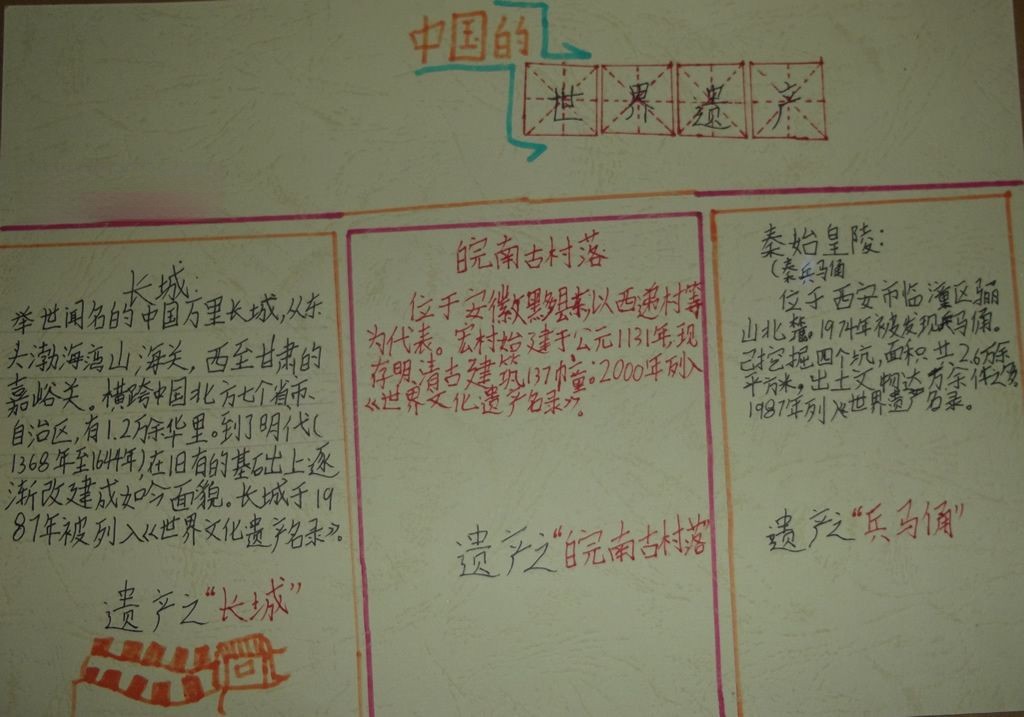 中国的
世界遗产
长城:
举世闻名的中国万里长城,从东
头渤海湾山海关,西至甘肃的
嘉峪关。横跨中国北方七个省市、
自治区,有1.2万余华里。到了明代(
1368年至1644年),在旧有的基础上逐
渐改建成如今面貌。长城于19
87年被列入《世界文化遗产名录》。
遗产之“长城”
皖南古村落
位于安徽黟县,以西递村等
为代表。宏村始建于公元1131年,现
存明清古建筑137幢。2000年列入
《世界文化遗产名录》。
遗产之“皖南古村落”
秦始皇陵:
(秦兵马俑
位于西安市临潼区骊
山北麓。1974年被发现兵马俑。
已挖掘四个坑,面积共2.6万余
平方米,出土文物达万余件之多
1987年列入《世界遗产名录。
遗产之“兵马俑”